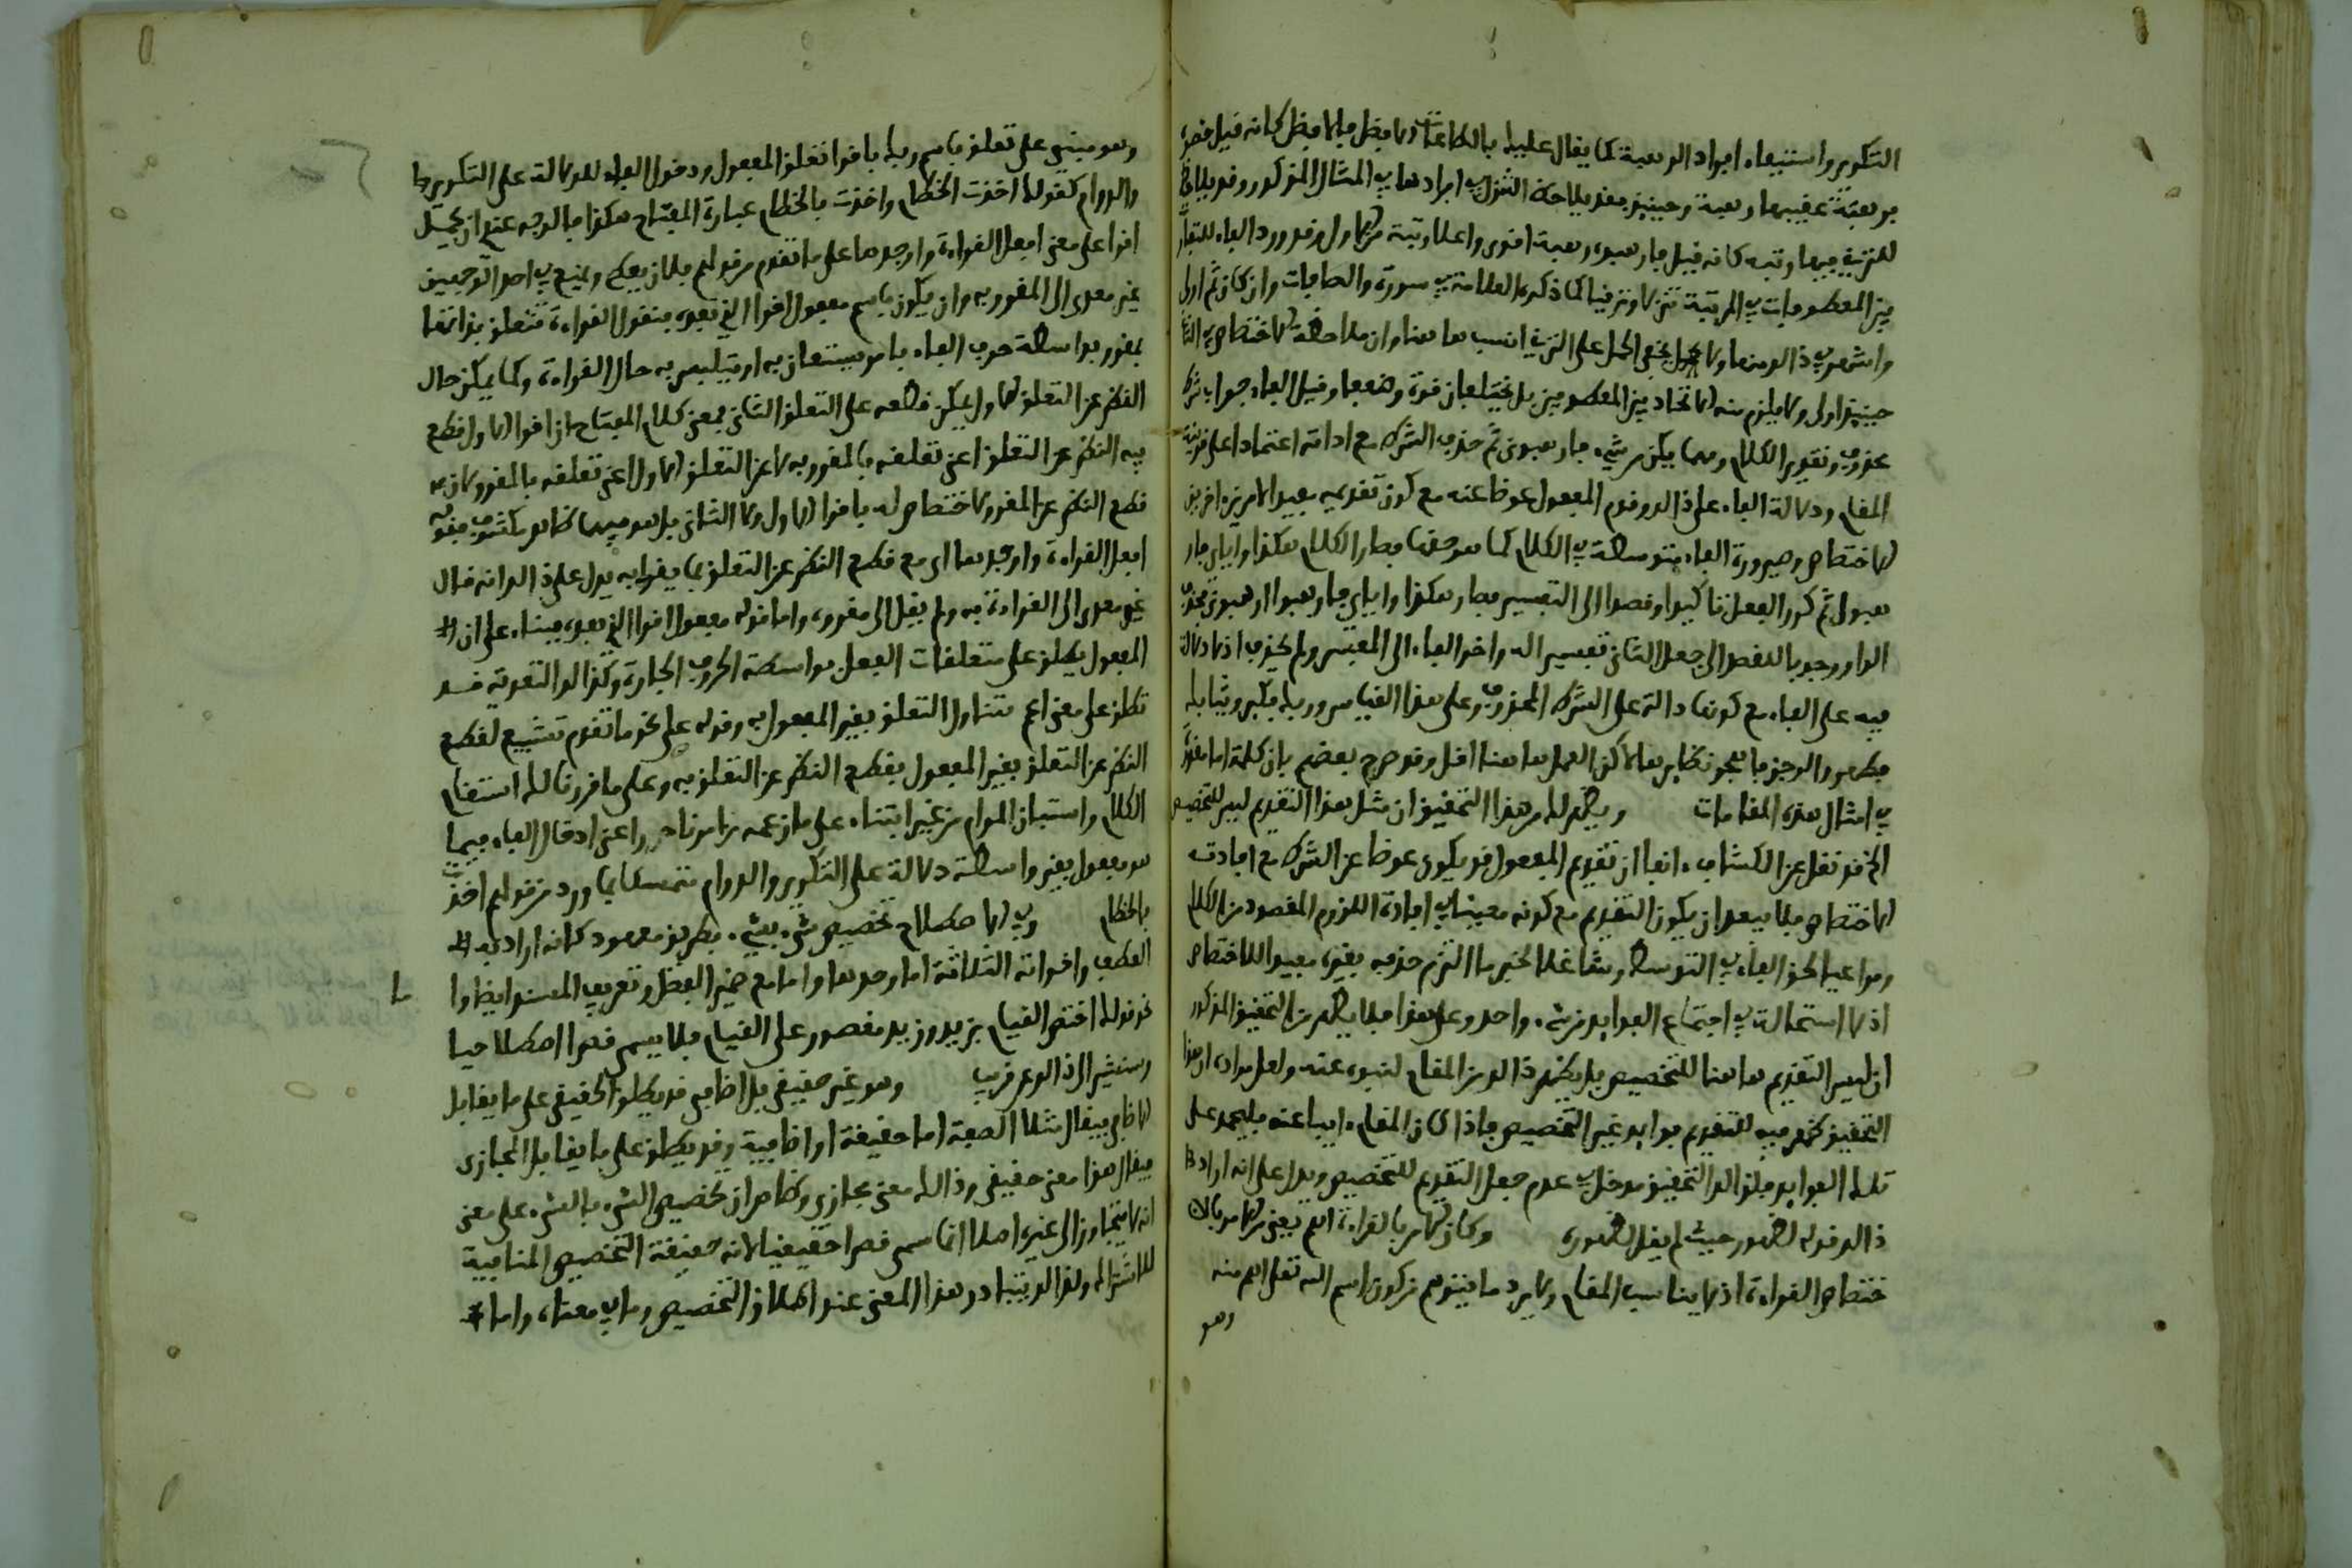 التكرير واستتباع افراد الرهبة كما يقال عليك بالطاعات الافضل فالافضل كانه قيل فخص
برهبة عقيبها رهبة وحينئذ يفيد ملاحظة التنزل في افراد هاب المثال المذكور وقد يلاحظ
للترتيب فيها رتبه كانه قيل فارهبوه رهبة اقوى واعلا رتبة من الاول فورود الفاء للتفاوت
بين المعطوفات في المرتبة تنزلا وترقيا كما ذكره العلامة في سورة والصافات وان كان ثم اولى
واشهر في ذلك ومنها ولا يخفى الحمل على الترقي انسب هاهنا وان ملاحظة الاختصاص في الثا
حينئذ اولى ولا يلزم منه الاتحاد بين المعطوفين بل يختلفان قوة وضعفا وقيل الفاء جواب شرط
محذوف وتقدير الكلام ومهما يكن من شيء فارهبون ثم حذف الشرط مع اداته اعتمادا على قرينة
المقام ودلالة الفاء على ذلك وقدم المفعول عوضا عنه مع كون تقديمه مفيدا لامرين اخرين
الاختصاص وصيرورة الفاء متوسطة في الكلام كما هو حقها فصار الكلام هكذا وايأي فار
هبون ثم كرر الفعل تاكيدا وقصدا الى التفسير فصار هكذا واياي فارهبوا ارهبون فحذف
الواو وجوبا للقصد الى جعل الثاني تفسيرا له واخر الفاء الى المفسر ولم يحذف اذ لا دلالة
فيه على الفاء مع كونها دالة على الشرط المحذوف وعلى هذا القياس وربك فكبر وثيابك
فطهر والرجز فاهجر ونظايرها لاكن العمل هاهنا اقل وقد صرح بعضهم بان كلمة اما مقدر
في امثال هذه المقامات ويظهر لك من هذا التحقيق ان مثل هذا التقديم ليس للتخصيص
الخ قد نقل عن الكشاف انفا ان تقديم المفعول قد يكون عوضا عن الشرط مع افادته
الاختصاص فلا يبعد ان يكون التقديم مع كونه معينا في افادة اللزوم المقصود من الكلام
ومراعيا لحق الفاء في التوسط وشاغلا لحيز ما التزم حذفه بغيره مفيدا للاختصاص
اذ لا استحالة في اجتماع الفوايد من شيء واحد وعلى هذا فلا يظهر من التحقيق المذكور
ان ليس التقديم هاهنا للتخصيص بل يظهر ذلك من المقام لنبوه عنه ولعل مراده ان هذا
التحقيق ظهر فيه للتقديم فوايد غير التخصيص فاذا كان المقام ابيا عنه فليحمل على
تلك الفوايد فلذلك التحقيق مدخل في عدم جعل التقديم للتخصيص ويدل على انه اراد
ذلك قوله لظهور حيث لم يقل لظهوره وكان الامر بالقراءة اهم يعني من الامر بالا
ختصاص القراءة اذ لا يناسب المقام ولا يرد ما يتوهم من كون اسم الله تعلى اهم منه
وهو
وهو مبني على تعلق باسم ربك باقرا تعلق المفعول ودخول الباء للدلالة على التكرير
والدوام كقولك اخذت الخطام واخذت بالخطام عبارة المفتاح هكذا فالوجه عندي ان يحمل
اقرا على معنى افعل القراءة واوجدها على ما تقدم من قولهم فلان يعطي ويمنع في احد الوجهين
غير معدى الى المقروء به وان يكون باسم مفعول اقرا الذي بعده فنقول القراءة تتعلق بذاتها
بمقرو وبواسطة حرف الباء بامر يستعان به او يتلبس به حال القراءة وكما يمكن حال
النظر عن التعلق الاول يمكن قطعه على التعلق الثاني فمعنى كلام المفتاح ان اقرا الاول قطع
فيه النظر عن التعلق اعني تعلقه بالمقروء به لا عن التعلق الاول اعني تعلقه بالمقرو لان
قطع النظر عن المقرو لا اختصاص له باقرا الاول ولا الثاني بل هو فيهما ظاهر مكشوف فقوله
افعل القراءة واوجدها اي مع قطع النظر عن التعلق بما يقرا به يدل على ذلك انه قال
غير معدى الى القراءة به ولم يقل الى مقروء واما قوله مفعول اقرا الذي بعده فبناء على ان
المفعول يطلق على متعلقات الفعل بواسطة الحروف الجارة وكذلك التعدية قد
تطلق على معنى اعم متناول التعلق بغير المفعول به وقوله على نحو ما تقدم تشبيه لقطع
النظر عن التعلق بغير المفعول بقطع النظر عن التعلق به وعلى ما قررنا لك استقام
الكلام واستبان المرام من غير ابتناء على ما زعمه من امر نادر اعني ادخال الباء فيما
هو مفعول بغير واسطة دلالة على التكرير والدوام متمسكا بما ورد من قولهم اخذت
بالخطام وفي الاصطلاح تخصيص شيء بشيء بطريق معهود كانه اراد به
العطف واخواته الثلاثة اما وحدها واما مع ضمير الفصل وتعريف المسند ايضا وا
ما
نحو قولك اختص القيام بزيد وزيد مقصور على القيام فلا يسمى قصرا اصطلاحيا
وسنشير الى ذلك عن قريب وهو غير حقيقي بل اضافي قد يطلق الحقيقي على ما يقابل
الاضافي فيقال مثلا الصفة اما حقيقة او اضافية وقد يطلق على ما يقابل المجازي
فيقال هذا معنى حقيقي وذلك معنى مجازي وظاهر ان تخصيص الشيء بالشيء على معنى
انه لا يتجاوز الى غيره اصلا انما سمى قصرا حقيقيا لانه حقيقة التخصيص المنافية
للاشتراك ولذلك يتبادر هذا المعنى عند اطلاق التخصيص وما في معناه واما